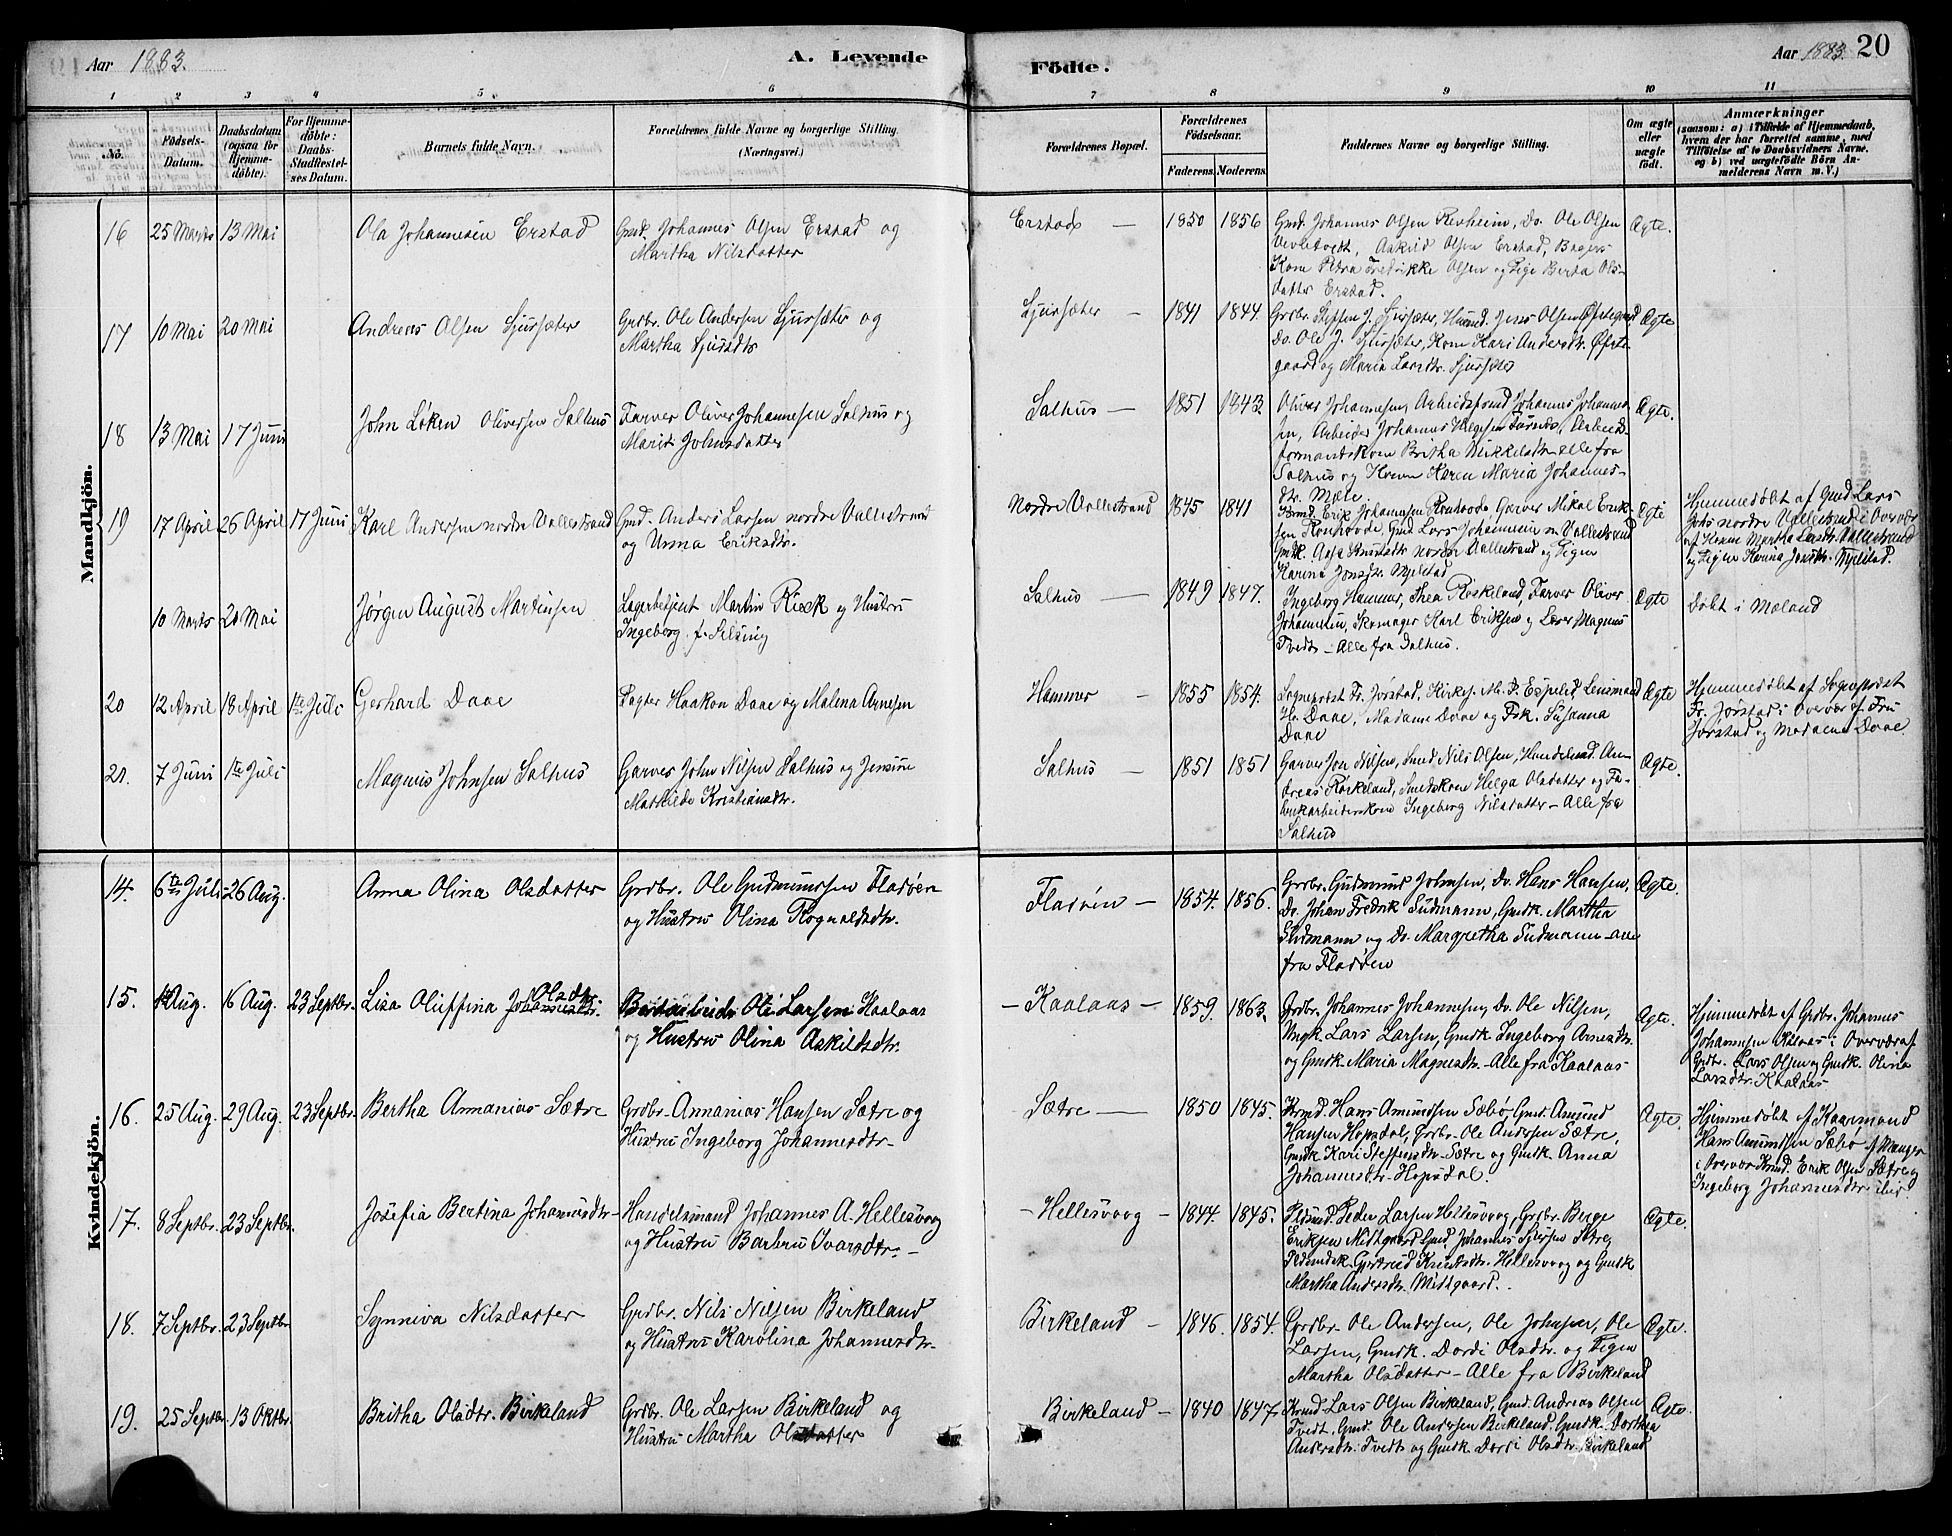 Aar 1883.
A. Levende
Födte.
Aar 1883. 20
1 2 3 4 5 6 7 8 9 10 11
No.
Födsels-
Datum.
Daabsdatum
(ogsaa for
Hjemme-
döbte).
For Hjemme-
döbte:
Daabs-
Stadfestel-
ses Datum.
Barnets fulde Navn.
Forældrenes fulde Navne og borgerlige Stilling.
(Næringsvei.)
Forældrenes Bopæl.
Forældrenes
Födselsaar.
Faderens. Moderens.
Faddernes Navne og borgerlige Stilling.
Om ægte
eller
uægte
födt.
Anmærkninger
(saasom: a) i Tilfælde af Hjemmedaab,
hvem der har forrettet samme, med
Tilföielse af to Daabsvidners Navne,
og b) ved uægtefödte Börn An-
melderens Navn m. V.)
Mandkjön.
16 25 Marts 13 Mai
Ola Johannesen Erstad
Gmd. Johannes Olsen Erstad og
Martha Nilsdatter
Erstad —
1850 1856
Gmd. Johannes Olsen Revheim, Do. Ole Olsen
Vevletveit, Askild Olsen Erstad, Bagers
Kone Petra Fredrikke Olsen og Pige Berta Ols-
datter Erstad.
Ægte.
17 10 Mai 20 Mai
Andreas Olsen Sjursæter
Grdbr. Ole Andersen Sjursæter og
Martha Sjursdtr
Sjursæter —
1841 1844.
Grdbr. Steffen J. Sjursæter, Huusmd. Jens Olsen Øfstegaard
Do. Ole J. Sjursæter, Kone Kari Andersdtr. Øfste-
gaard og Maria Larsdtr. Sjursæter
Ægte
18 13 Mai 17 Juni
John Løken Oliversen Salhus
Farver Oliver Johannesen Salhus og
Marit Johnsdatter
Salhus —
1851 1843
Oliver Johannesen, Arbeidsformd Johannes Johannes-
sen, Arbeider Johannes Helgesen Tørnes, Arbeids-
formandskone Britha Mikkelsdtr. — alle fra
Salhus og Konen Karen Maria Johannes-
dtr. Mæle.
Ægte.
19 17 April 26 April 17 Juni
Karl Andersen nordre Vallestrand
Gmd. Anders Larsen nordre Vallestrand
og Unna Eriksdtr.
Nordre Vallestrand
1845 1841
Krmd. Erik Johannesen Ronhovde Garver Mikal Erik-
sen Ronhovde, Gmd Lars Johannesen n. Vallestrand
Gmdk. Aasa Knutsdtr nordre Vallestrand og Pigen
Karina Jonsdtr. Mjelstad
Ægte
Hjemmedøbt af Gmd Lars
Johs nordre Vallestrand i Overvær
af Konen Martha Larsdtr. Vallestrand
og Pigen Karina Jonsdtr. Mjelstad.
10 Marts 20 Mai
Jørgen August Martinsen
Lagerbetjent Martin Rieck og Hustru
Ingeborg f.
Salhus —
1849 1847.
Ingeborg Hammer, Thea Roskeland, Farver Oliver
Johannesen, Skomager Karl Eriksen og Lærer Magnus
Tvedt — Alle fra Salhus.
Ægte
døbt i Mæland
20 12 April 18 April 1ste Juli
Gerhard Daae
Pagter Haakon Daae og Malena Arnesen
Hammer —
1855 1854.
Sogneprest Fr. Jørstad, Kirkes. M. P. Espelid, Lensmand
H. Daae, Madame Daae og Frk. Susanna
Daae
Ægte
Hjemmedøbt af Sogneprest
Fr. Jørstad i Overvær af Fru
Jørstad og Madame Daae
21. 7 Juni 1ste Juli
Magnus Johnsen Salhus
Garver John Nilsen Salhus og Jensine
Mathilde Kristiansdtr.
Salhus —
1851 1851
Garver Jon Nilsen, Smed Nils Olsen, Handelsmd. An-
dreas Roskeland, Smedskone Helga Olsdatter og Fa-
brikarbeiderskone Ingeborg Nilsdatter — Alle fra
Salhus
Ægte.
Kvindekjön.
14. 6te Juli 26 Aug.
Anna Olina Olsdatter
Grdbr. Ole Gudmundsen Fladøen
og Hustru Olina Rognaldsdtr.
Fladøen —
1854. 1856.
Grdbr. Gudmund Johnsen, Do. Hans Hansen,
Do. Johan Fredrik Sudmann, Gmdk. Martha
Sudmann og Do. Margretha Sudmann — alle
fra Fladøen
Ægte.
15. Aug. 16 Aug. 23 Septbr.
Lisa Oluffina Johannesdtr. Olsdtr.
Ole Larsen Kaalaas
og Hustru Olina Askildsdtr.
— Kaalaas —
1859. 1863.
Grdbr. Johannes Johannesen, Do. Ole Nilsen,
Ungk. Lars Larsen, Gmdk Ingeborg Arnesdtr.
og Gmdk. Maria Magnesdtr. — Alle fra Kaalaas
Ægte.
Hjemmedøbt af Grdbr. Johannes
Johannesen Kalaas i Overvær af
Grdbr. Lars Olsen og Gmdk. Olina
Larsdtr. Kaalaas
16. 25 Aug. 29 Aug. 23 Septbr.
Bertha Annanias Sætre
Grdbr. Annanias Hansen Sætre og
Hustru Ingeborg Johannesdtr.
Sætre —
1850 1845.
Krmd. Hans Amundsen Sæbø, Gmd. Amund
Hansen Hopsdal, Grdbr. Ole Andersen Sætre,
Gmdk Kari Steffensdtr. Sætre og Gmdk. Anna
Johannesdtr. Hopsdal.
Ægte.
Hjemmedøbt af Kaarmand
Hans Amundsen Sæbø af Manger
i Overvær Krmd. Erik Olsen Sætre og
Ingeborg Johannesdtr. ibid.
17. 8 Septbr. 23 Septbr.
Josefia Bertina Johannesdtr.
Handelsmand Johannes A. Hellesvaag
og Hustru Barbru Ivarsdtr. —
— Hellesvaag —
1844. 1845.
Peder Larsen Hellesvaag, Grdbr. Berge
Eriksen Midtgaard Gmd. Johannes Sjursen Sætre,
Gjertrud Knutsdtr. Hellesvaag og Gmdk
Martha Andersdtr. Midtgaard.
Ægte.
18. 7 Septbr. 23 Septbr.
Synniva Nilsdatter
Grdbr. Nils Nilsen Birkeland
og Hustru Karolina Johannesdtr.
Birkeland —
1846. 1854.
Grdbr. Ole Andersen, Ole Johnsen, Ole
Larsen, Gmdk. Dordi Olsdtr. og Pigen
Martha Olsdatter — Alle fra Birkeland
Ægte.
19. 25 Septbr. 13 Oktbr.
Britha Olsdtr. Birkeland
Grdbr. Ole Larsen Birkeland og
Hustru Martha Olsdatter
Birkeland —
1840 1847
Krmd Lars Olsen Birkeland, Gmd. Andreas Olsen
Tvedt, Gmd. Ole Andersen Birkeland, Gmdk. Dorthea
Andersdtr. Tvedt og Gmdk. Dordi Olsdtr. Birkeland
Ægte.